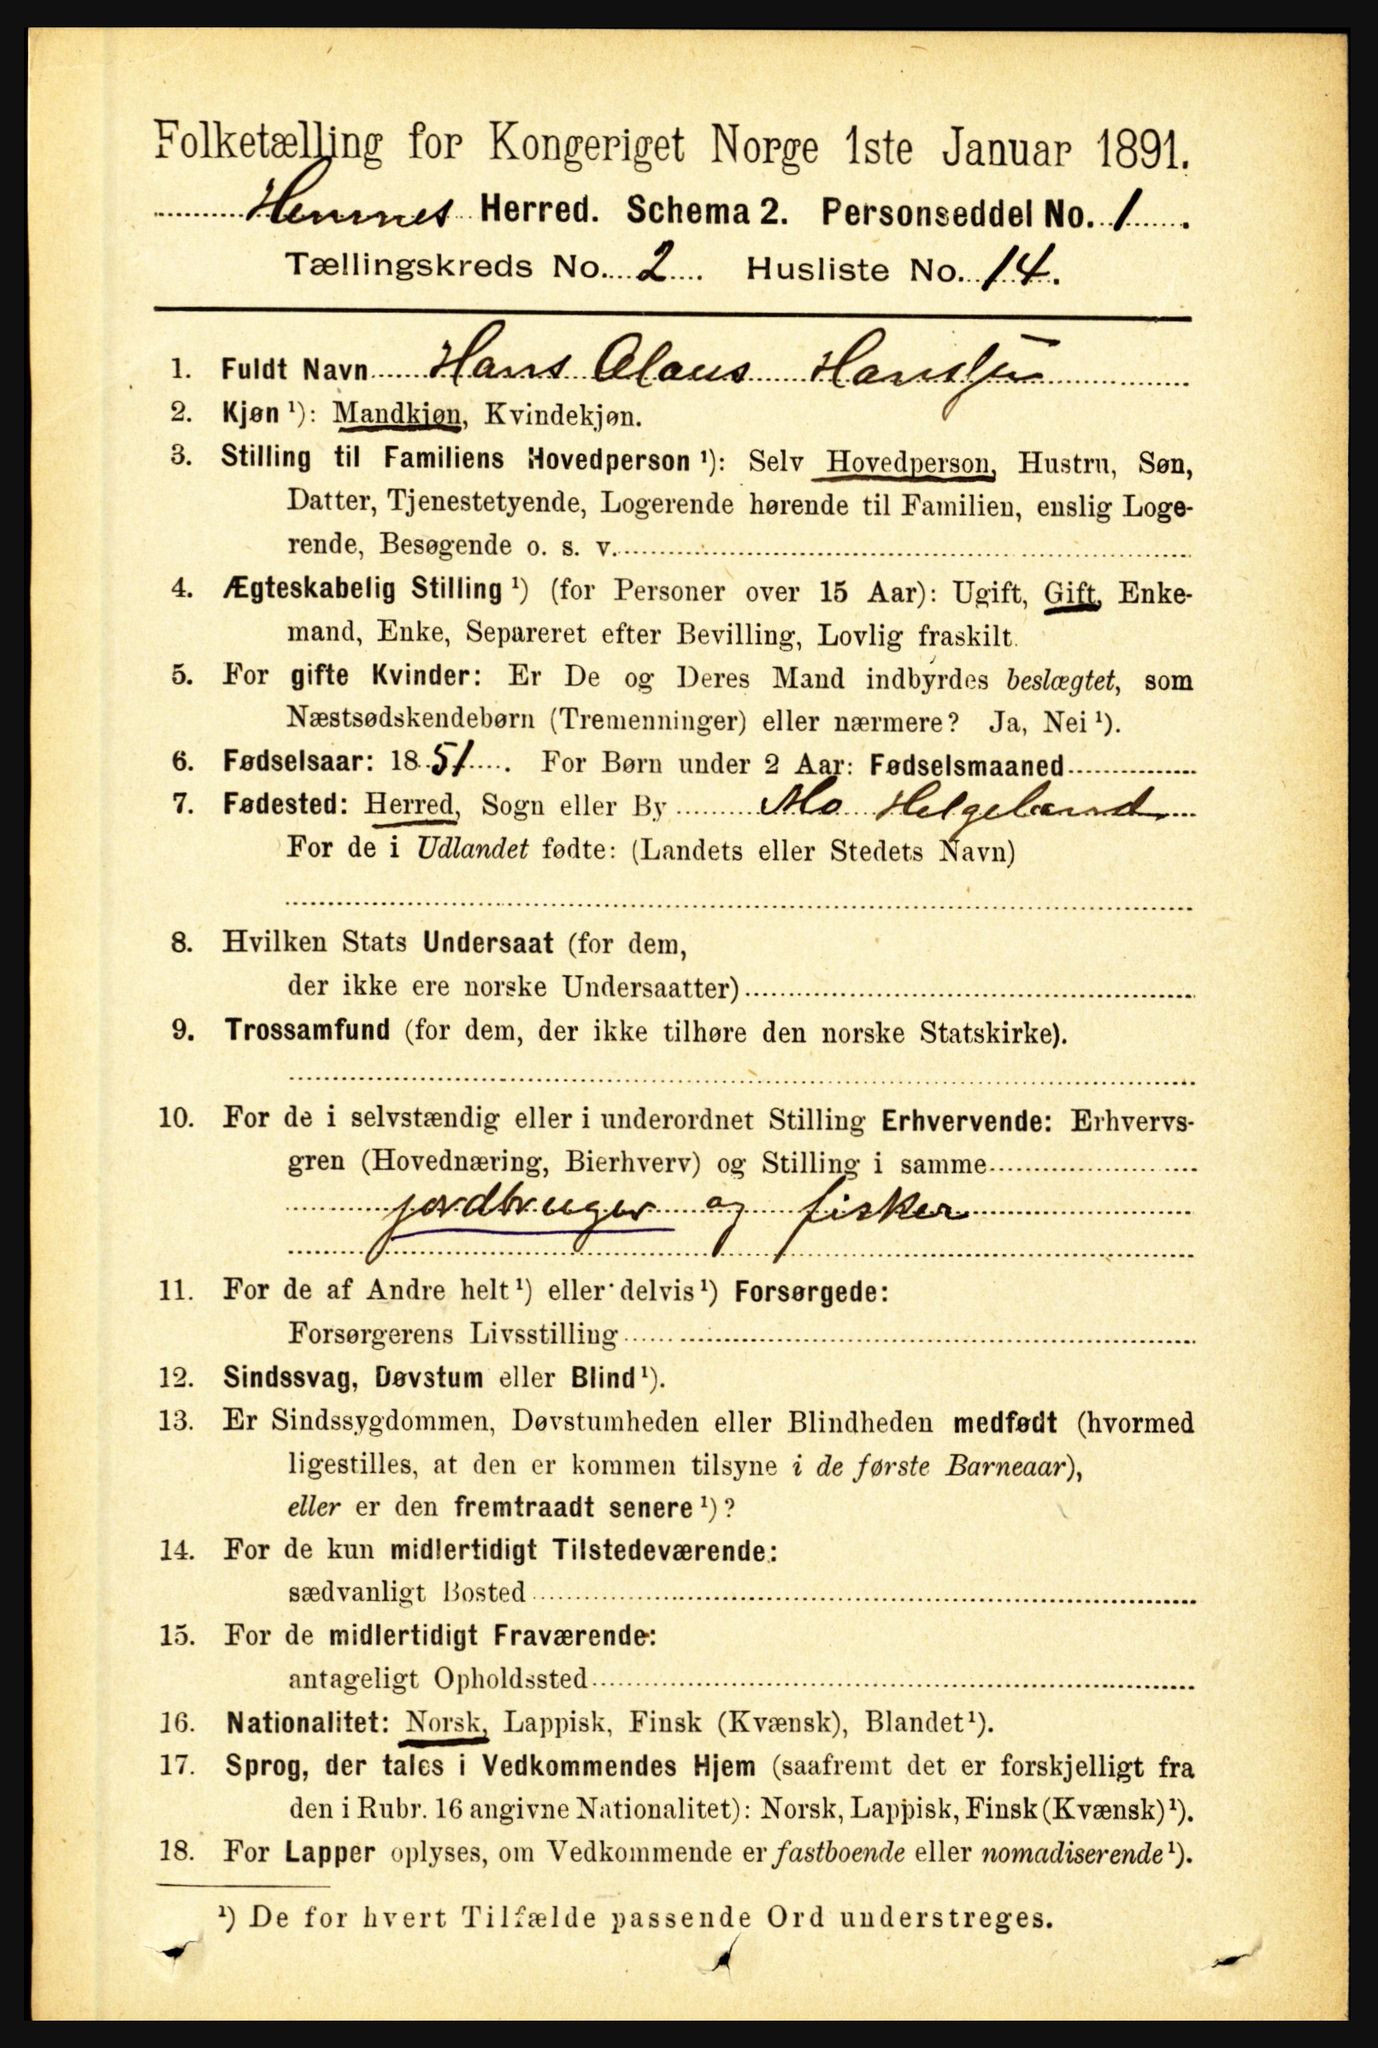 Folketælling for Kongeriget Norge 1ste Januar 1891.
Hemnes Herred. Schema 2. Personseddel No. 1.
Tællingskreds No. 2. Husliste No. 14.
1. Fuldt Navn Hans Olaus
2. Kjøn ¹): Mandkjøn, Kvindekjøn.
3. Stilling til Familiens Hovedperson ¹): Selv Hovedperson, Hustru, Søn,
Datter, Tjenestetyende, Logerende hørende til Familien, enslig Loge-
rende, Besøgende o. s. v.
4. Ægteskabelig Stilling ¹) (for Personer over 15 Aar): Ugift, Gift, Enke-
mand, Enke, Separeret efter Bevilling, Lovlig fraskilt.
5. For gifte Kvinder: Er De og Deres Mand indbyrdes beslægtet, som
Næstsødskendebørn (Tremenninger) eller nærmere? Ja, Nei ¹).
6. Fødselsaar: 1851. For Børn under 2 Aar: Fødselsmaaned
7. Fødested: Herred, Sogn eller By Mo Helgeland
For de i Udlandet fødte: (Landets eller Stedets Navn)
8. Hvilken Stats Undersaat (for dem,
der ikke ere norske Undersaatter)
9. Trossamfund (for dem, der ikke tilhøre den norske Statskirke).
10. For de i selvstændig eller i underordnet Stilling Erhvervende: Erhvervs-
gren (Hovednæring, Bierhverv) og Stilling i samme
jordbruger og fisker
11. For de af Andre helt ¹) eller delvis ¹) Forsørgede:
Forsørgerens Livsstilling
12. Sindssvag, Døvstum eller Blind ¹).
13. Er Sindssygdommen, Døvstumheden eller Blindheden medfødt (hvormed
ligestilles, at den er kommen tilsyne i de første Barneaar),
eller er den fremtraadt senere ¹)?
14. For de kun midlertidigt Tilstedeværende:
sædvanligt Bosted
15. For de midlertidigt Fraværende:
antageligt Opholdssted
16. Nationalitet: Norsk, Lappisk, Finsk (Kvænsk), Blandet ¹).
17. Sprog, der tales i Vedkommendes Hjem (saafremt det er forskjelligt fra
den i Rubr. 16 angivne Nationalitet): Norsk, Lappisk, Finsk (Kvænsk) ¹).
18. For Lapper oplyses, om Vedkommende er fastboende eller nomadiserende ¹).
¹) De for hvert Tilfælde passende Ord understreges.